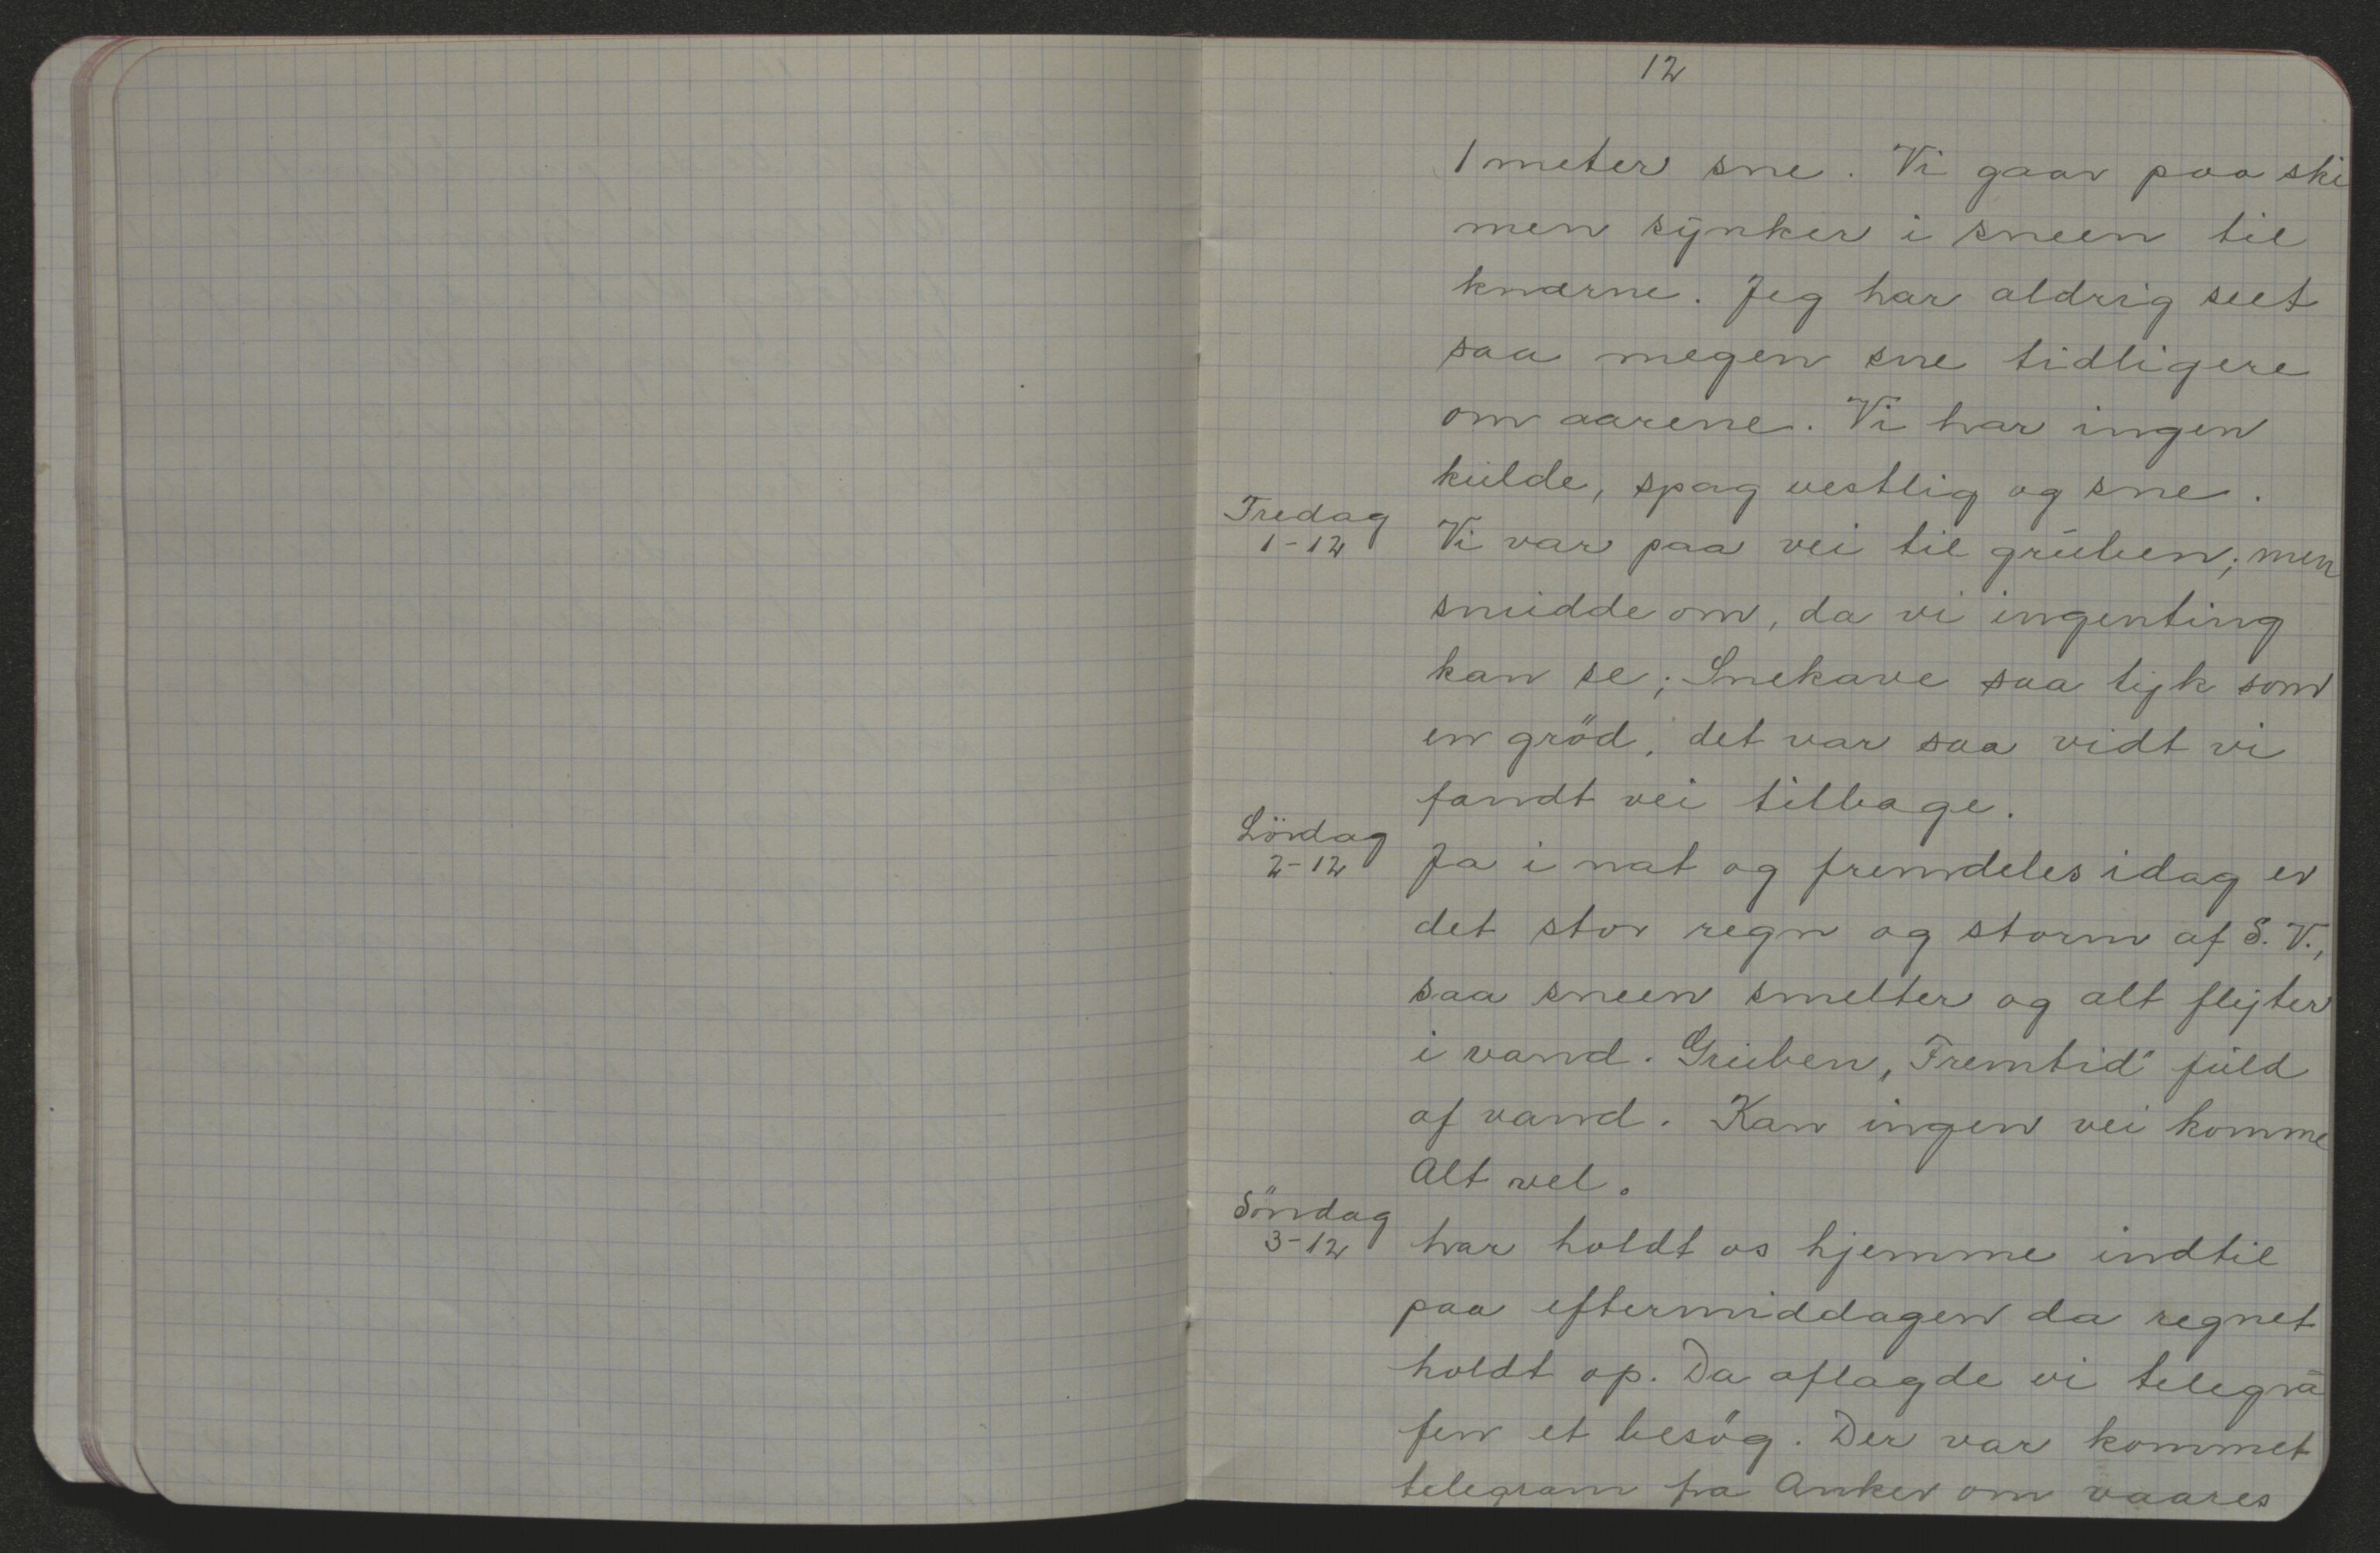 12
1 meter sne. Vi gaar paa ski
men synker i sneen til
knærne. Jeg har aldrig seet
saa megen sne tidligere
om aarene. Vi har ingen
kulde, spag vestlig og sne.
Fredag
1-12
Vi var paa vei til gruben; men
snudde om, da vi ingenting
kan se; Snekave saa tyk som
en gröd, det var saa vidt vi
fandt vei tilbage.
Lördag
2-12
Ja i nat og fremdeles idag er
det stor regn og storm af S.V.,
saa sneen smelter og alt flyter
i vand. Gruben „Fremtid" fuld
af vand. Kan ingen vei komme
Alt vel.
Söndag
3-12
har holdt os hjemme indtil
paa eftermiddagen da regnet
holdt op. Da aflagde vi telegra
fen et besög. Der var kommet
telegram fra Anker om vaares